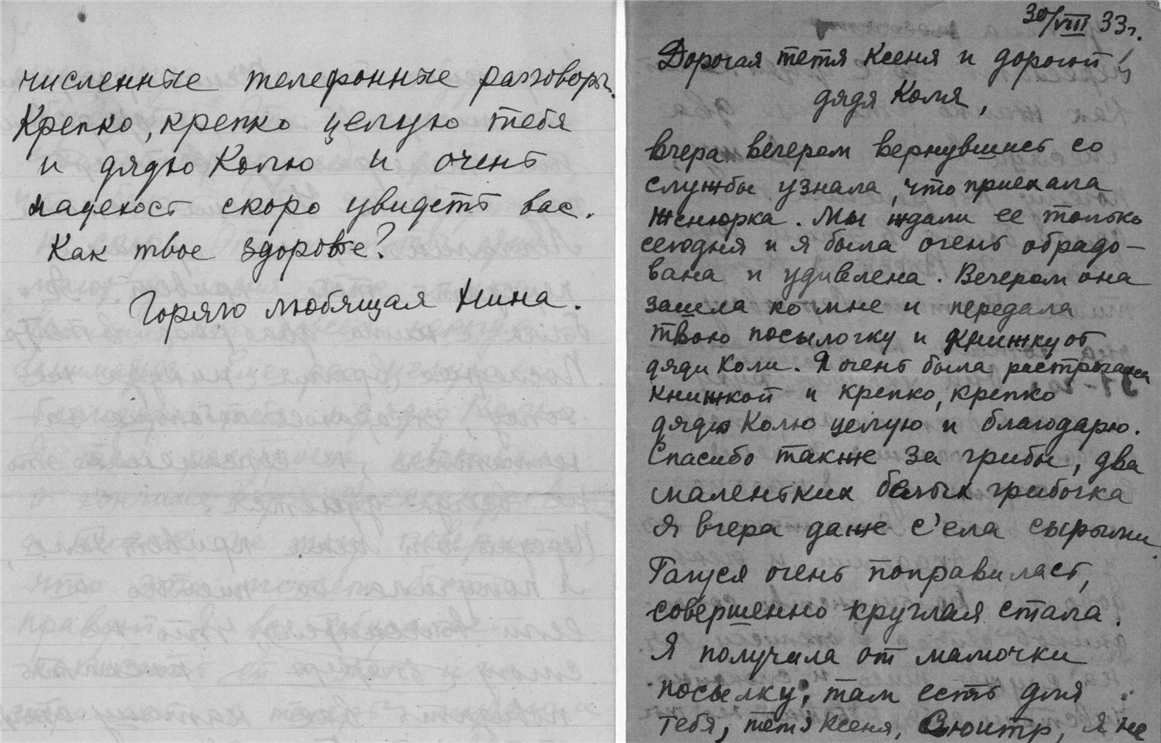 численные телефонные разговоры.
Крепко, крепко целую тебя
и дядю Колю и очень
надеюсь скоро увидеть вас.
Как твое здоровье?
Горячо любящая Нина.
30/VIII 33г.
Дорогая тетя Ксеня и дорогой
дядя Коля,
вчера вечером вернувшись со
службы узнала, что приехала
Женюрка. Мы ждали ее только
сегодня и я была очень обрадо-
вана и удивлена. Вечером она
зашла ко мне и передала
твою посылочку и книжку от
дяди Коли. Я очень была растрогана
книжкой и крепко, крепко
дядю Колю целую и благодарю.
Спасибо также за грибы, два
маленьких белых грибочка
я вчера даже с'ела сырыми.
Галуся очень поправилась,
совершенно круглая стала.
Я получила от мамочки
посылку; там есть для
тебя, тетя Ксеня, Я не